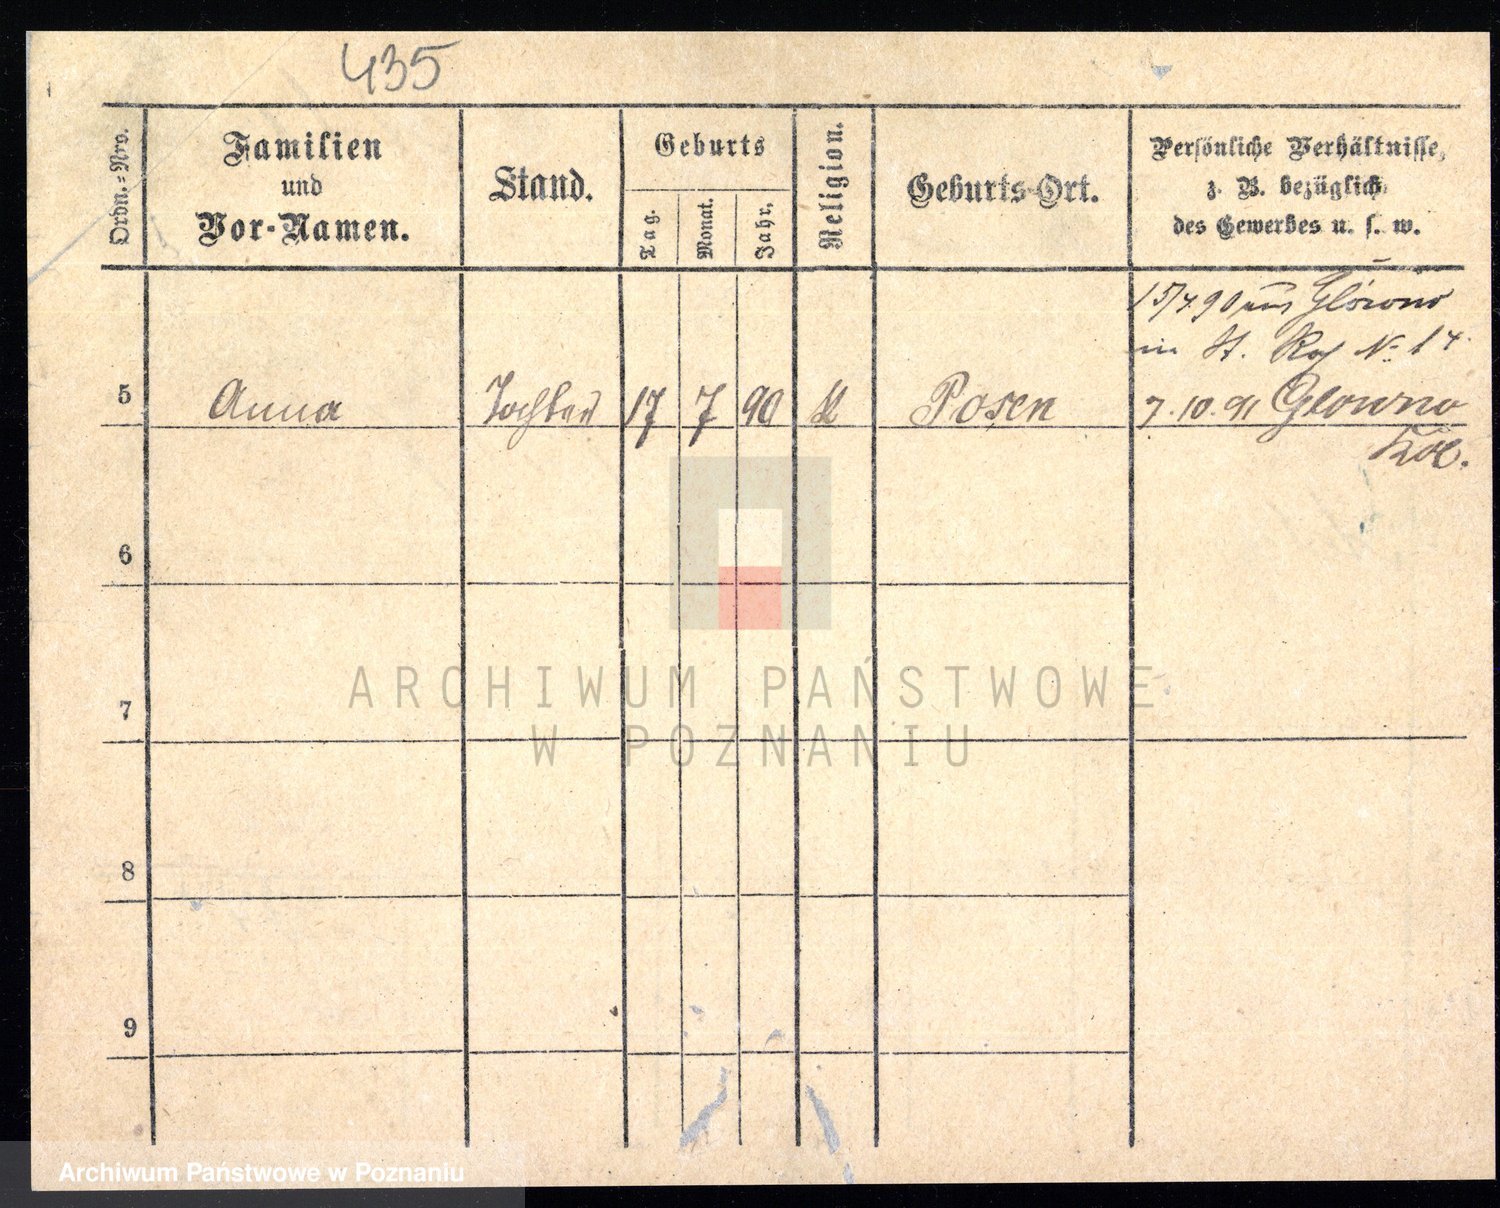 435
Ordn.-Nro.
Familien
und
Vor-Namen.
Stand.
Geburts
Tag.
Monat.
Jahr.
Religion.
Geburts-Ort.
Persönliche Verhältnisse,
z. B. bezüglich
des Gewerbes u. s. w.
15/4.90 aus Glówno
in St. Roch No 14.
5 Anna Tochter 17 7 90 k Posen 7.10.91 Glowno
6
7
8
9
ARCHIWUM PAŃSTWOWE
W POZNANIU
Archiwum Państwowe w Poznaniu